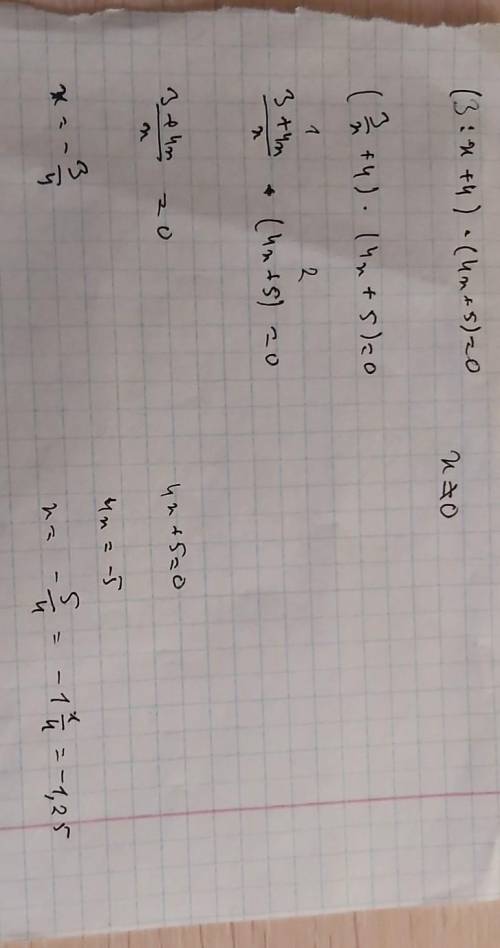 (3 : x + 4) · (4x + 5) = 0
x ≠ 0
(3/x + 4) · (4x + 5) = 0
1 2
(3 + 4x)/x · (4x + 5) = 0
(3 + 4x)/x = 0
4x + 5 = 0
4x = -5
x = -3/4
x = -5/4 = -1 1/4 = -1,25